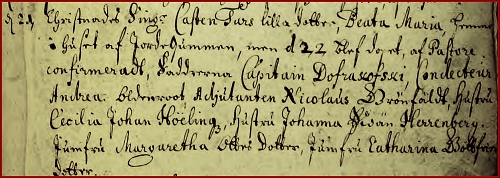 d 21, Christnades Sings Casten Furs lilla dotter Beata Maria, hemma
i huset af Jordegummen, men d 22 blef dopet, af Pastore
confirmeradt, Faddrerna Capitain Dofrasofsski, Conducteur
Andrea. Oldenroot Adjutanten Nicolaus Brönfäldt, Hustru
Cecilia Johan Höeling, Hustru Johanna Herrenberg.
Jumfru Margaretha Ottes Dotter, Jumfru Catharina
dotter.